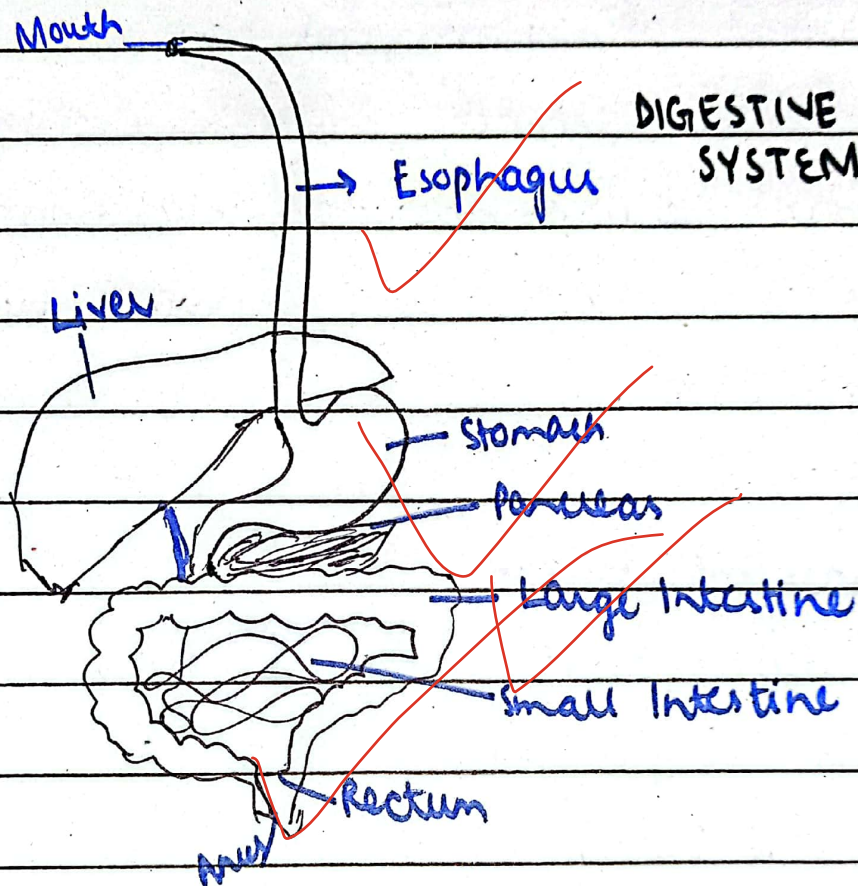 Mouth
DIGESTIVE
SYSTEM
Esophagus
Liver
Stomach
Pancreas
Large Intestine
Small Intestine
Rectum
Anus